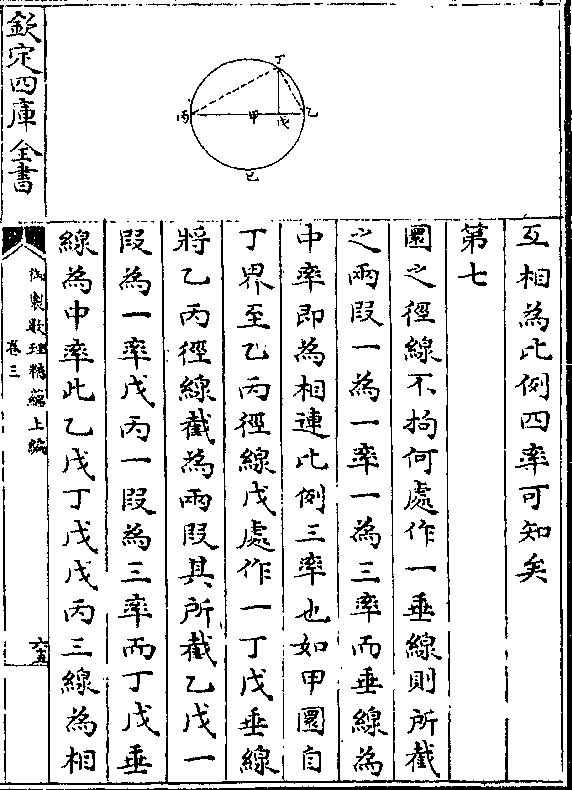 互相為比例四率可知矣
第七
圜之徑線不拘何處作一垂線則所截
之兩段一為一率一為三率而垂線為
中率即為相連比例三率也如甲圜自
丁界至乙丙徑線戊處作一丁戊垂線
將乙丙徑線截為兩段其所截乙戊一
段為一率戊丙一段為三率而丁戊垂
線為中率此乙戊丁戊戊丙三線為相
丁
丙
甲
戊
乙
己
欽定四庫全書
御製數理精蘊上編
卷三
六五